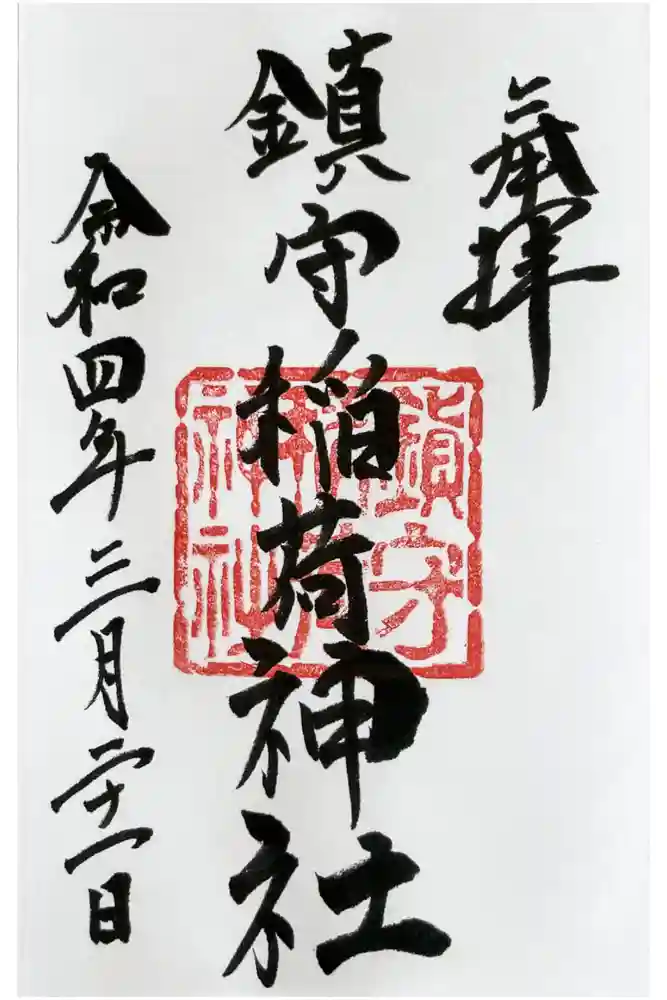 奉拝
鎮守稲荷神社
鎮守
稲荷
神社
令和四年三月二十一日